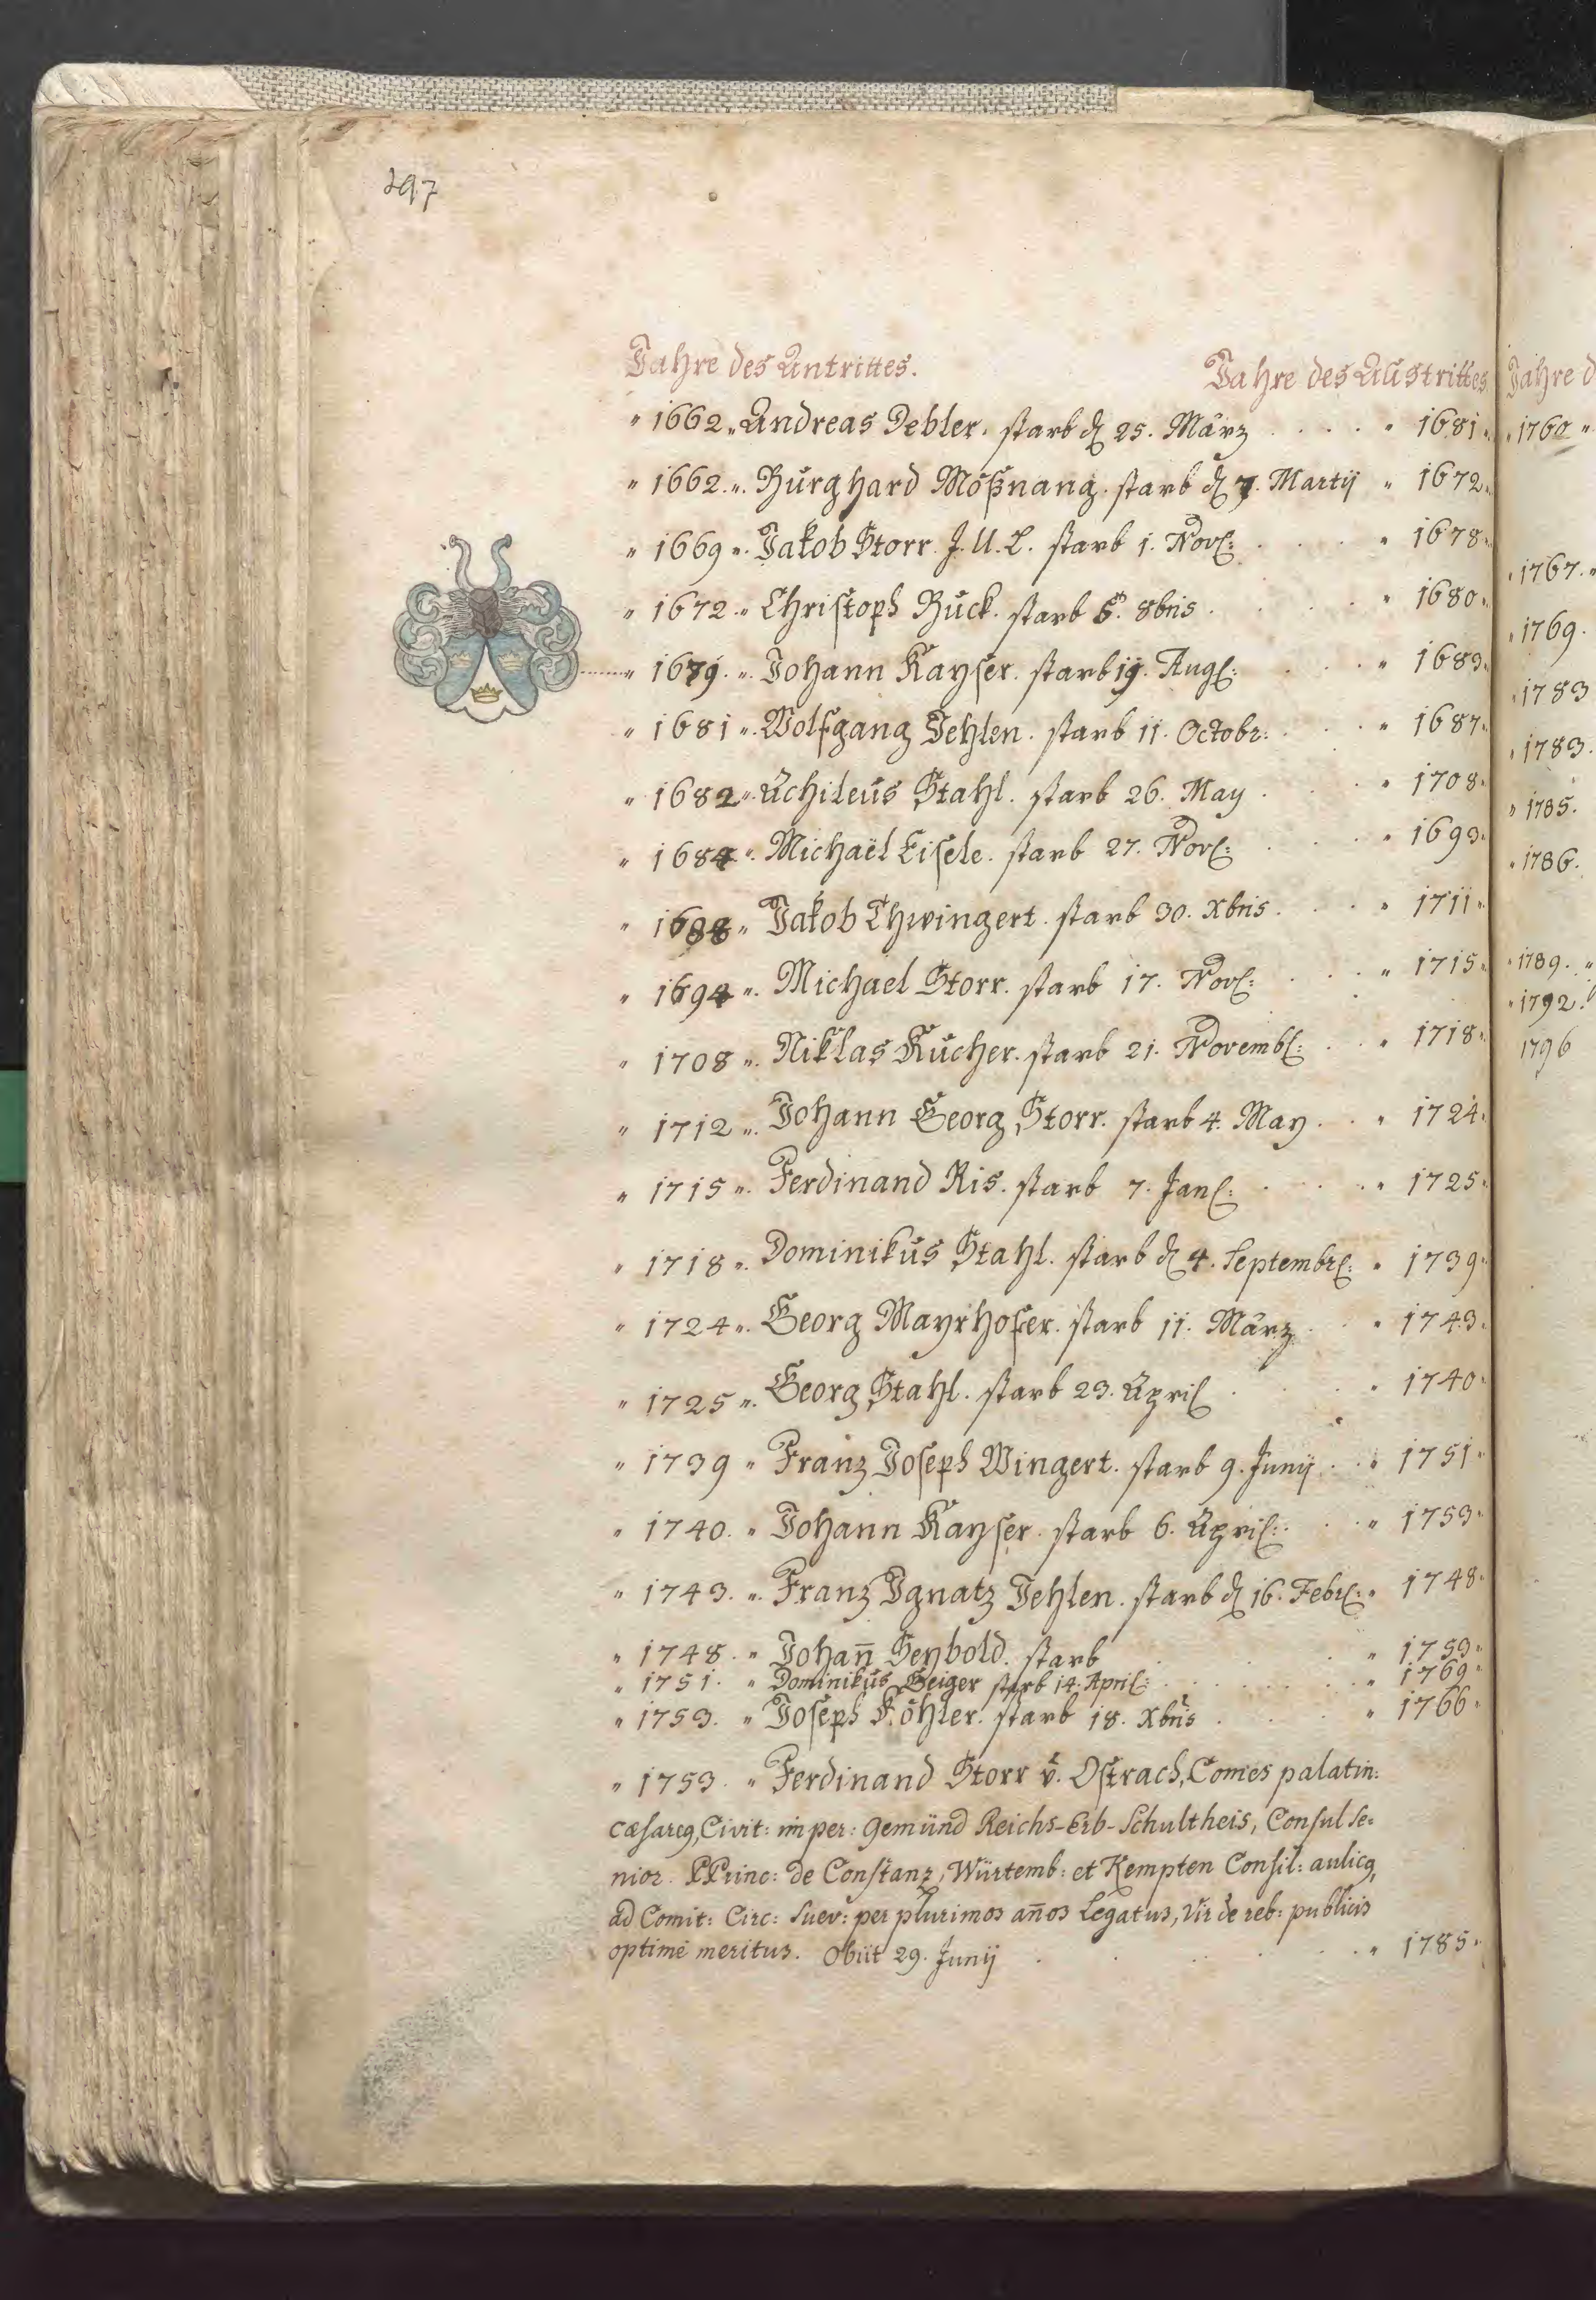 297
Jahre des Antrittes. Jahre des Austrittes
" 1662 " Andreas Debler. starb d. 25. März . . . . " 1681.
" 1662. ". Burghard Mößnang. starb d. 7. Martij " 1672.
" 1669 ". Jakob Storr J. U. L. starb 1. Nov: . . . " 1678.
" 1672 " Christoph Buck. starb 6. 8bris . . . " 1680.
" 1679. ". Johann Kayser. starb 19. Aug: . . . " 1683.
" 1681 ". Wolfgang Jehlen. starb 11. Octobr: . . . " 1687.
" 1682 ". Achileus Stahl. starb 26. May . . . " 1708.
" 1684 ". Michaël Eisele. starb 27. Nov: . . . " 1693.
" 1688 " Jakob Thwingert. starb 30. Xbris . . . " 1711.
" 1694 ". Michael Storr. starb 17. Nov: . . . " 1715.
" 1708 ". Niklas Kucher. starb 21. Novemb: . . " 1718.
" 1712 ". Johann Georg Storr. starb 4. May . . " 1724.
" 1715 ". Ferdinand Ris. starb 7. Jan: . . . " 1725.
" 1718 ". Dominikus Stahl. starb d. 4. Septembr: " 1739.
" 1724 ". Georg Mayrhofer. starb 11. März . . " 1743.
" 1725 ". Georg Stahl. starb 23. April . . . " 1740.
" 1739 " Franz Joseph Wingert. starb 9. Junij . . " 1751.
" 1740. " Johann Kayser. starb 6. April: . . " 1753.
" 1743. ". Franz Ignatz Jehlen. starb d. 16. Febr: " 1748.
" 1748. " Johañ Seybold. starb . . . " 1753.
" 1751. " Dominikus Geiger starb 14. April: . . . " 1769.
" 1753. " Joseph Köhler. starb 18. Xbris . . . " 1766.
" 1753. " Ferdinand Storr v. Ostrach, Comes palatin:
cæsareg, Civit: imper: Gemünd Reichs-Erb-Schultheis, Consul Se-
nior. PPrinc: de Constanz, Würtemb: et Kempten Consil: aulicg,
ad Comit: Circ: Suev: per plurimos años Legatus, Vir de reb: publicis
optimè meritus. Obiit 29. Junij . . . " 1785.
Jahre d
" 1760 "
" 1767. "
" 1769.
" 1783
" 1783.
" 1785.
" 1786.
" 1789. "
" 1792.
1796